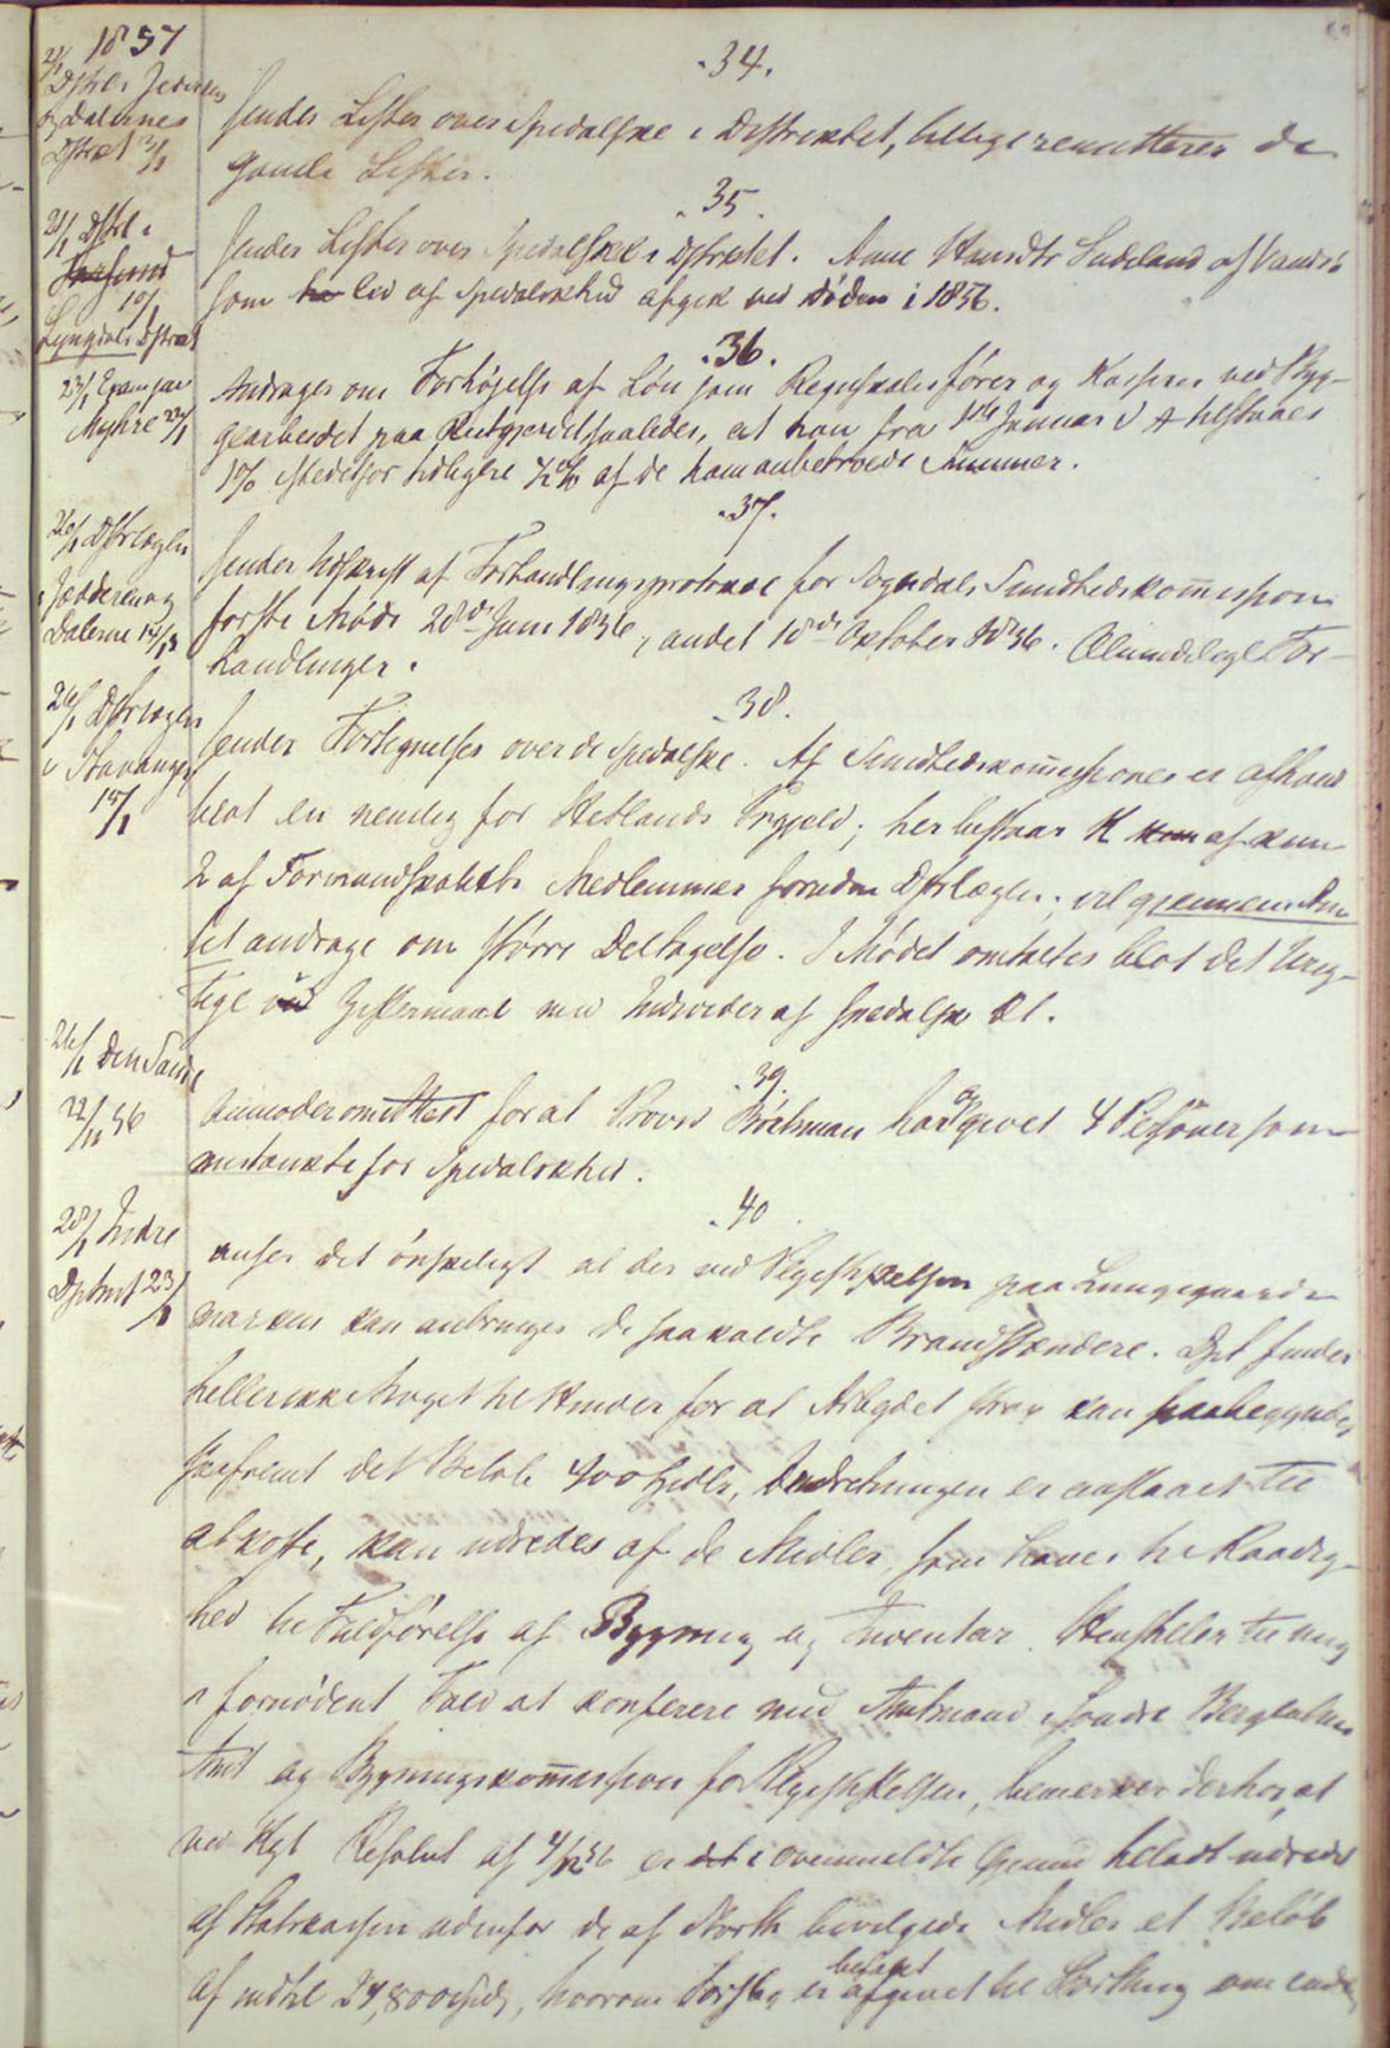 1857
.34.
21/1 Dstrl i Jederens
og Dalernes
Dstrkt 12/1
sender Lister over Spedalske i Distriktet, tillige remitteres de
gamle Lister.
.35.
21/1 Dstrl i
Farsund
10/1
Lyngdals Dstrict
sender Lister over Spedalske i Dstriktet. Anne Hansdtr Ladeland af Vandsø
som led af Spedalskhed afgik ved Døden i 1856.
.36.
23/1
Myhre 22/1
Andrages om Forhøjelse af Løn som Regnskabsfører og Kasserer ved Byg-
gearbeidet paa saaledes, at han fra 1ste Januar d A tilstaaes
1% istedetfor tidligere 1/2% af de ham anbetroede Summer.
.37.
26/1 Dstrlægen
i Jædderen og
Dalerne 14/1
sender Udskrift af Forhandlingsprotokol for Sogndals Sundhedskommission
første Møde 28de Juni 1856, andet 18de Oktober 1856. Almindelige For-
handlinger.
.38.
26/1 Dstrlægen
i Stavanger
15/1
sender Fortegnelser over de Spedalske. Af Sundhedskommissioner er afholdt
blot en nemlig for Hetlands Prgjeld; her bestaar K af kun
2 af Formandskabets Medlemmer foruden Dstrlægen; vil gjennem Am
tet andrage om større Deltagelse. I Mødet omtaltes blot det Urig-
tige ved Giftermaal med Individer af spedalsk Æt.
.39.
26/1 Den Samme
22/11 56
Anmoder om Attest for at Provst har opgivet 4 Personer som
mistænkte for Spedalskhed.
.40.
28/1 Indre
Dptmt 23/1
anser det ønskeligt at der ved Plejestiftelsen paa Lungegaards
marken kan anbringes de saakaldte Brandstændere. Dpt finder
heller ikke Noget til Hinder for at Arbejdet strax kan paabegyndes,
saafremt det Beløb 400 Spdlr, Indretningen er anslaaet til
at koste, kan udredes af de Midler, som haves til Raadig-
hed til Fuldførelse af Bygning og Inventar. Henstiller til mig
i fornødent Fald at konferere med Amtmand i Søndre Bergenhus
Amt og Bygningskommission for Plejestiftelsen, bemærker derhos, at
ved Kgl Resolut af 4/12 56 er i ovenmeldte Øiemed tilladt udredet
af Statskassen udenfor de af Storth bevilgede Midler et Beløb
af indtil 24,800 Spd, hvorom Forslag er befalet afgivet til Storthing om